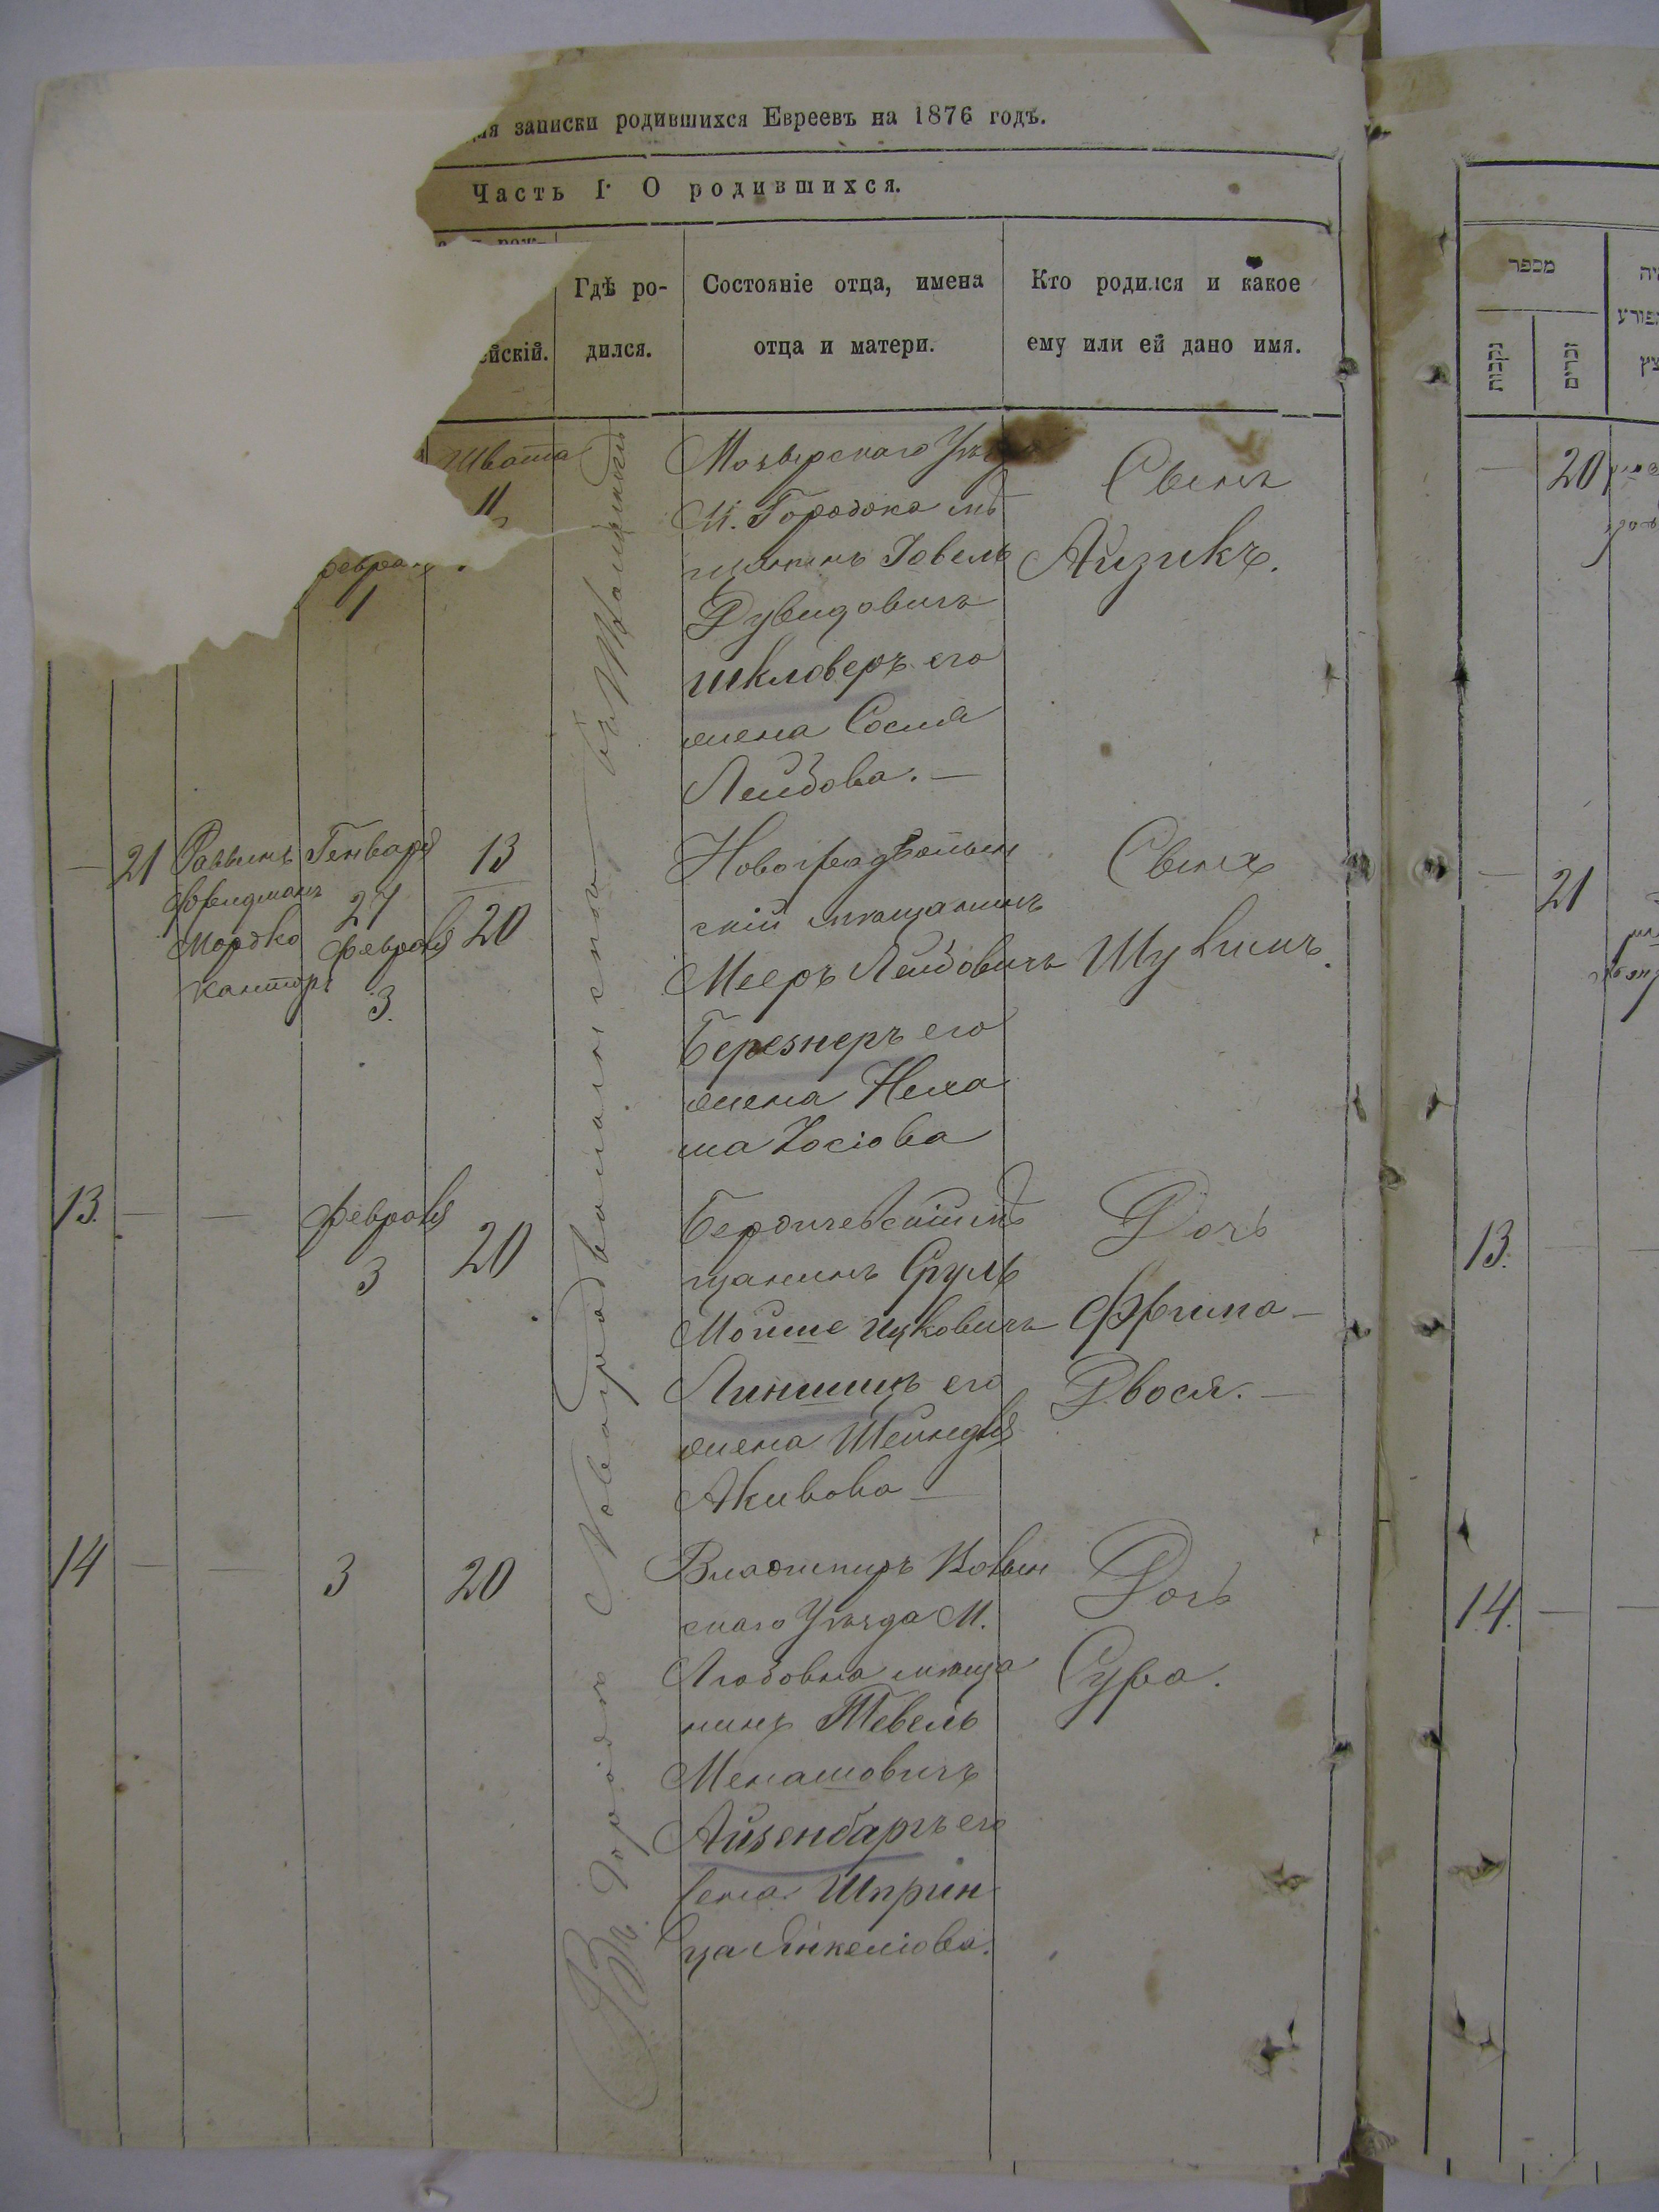 записки родившихся Евреевъ на 1876 годъ.
Часть I. О родившихся.
ейскій.
Гдѣ ро-
дился.
Состояніе отца, имена
отца и матери.
Кто родился и какое
ему или ей дано имя.
מספר
נקבות
זכרים
Швата
11
1
Мозырскаго
М. Городока мѣ
щанинъ Іовель
Дувидовичъ
Шкловеръ его
жена Сося
Лейбова. —
Сынъ
Айзикъ.
— 20
— 21
Раввинъ
Фрейдманъ
Мордко
Канторъ
Генваря
27
Февраля
3.
13
20
Новоградволын
скій мѣщанинъ
Мееръ Лейбовичъ
Березнеръ его
жена Неха
ма Іосіова
Сынъ
Шулимъ.
— 21
13. — —
Февраля
3
20
Бердичевскій мѣ
щанинъ Сруль
Мойше Ицковичъ
Линшицъ его
жена Шейндля
Акивова —
Дочь
Фрима —
Двося. —
13. — —
14 — — 3 20
Владимиръ Волын
скаго Уѣзда М.
Любовна мѣща
нинъ Тевель
Менашовичъ
Айзенбаргъ его
жена Шприн
ца Янкеліова.
Дочь
Сура.
14. — —
Въ городѣ Новоградволынскѣ